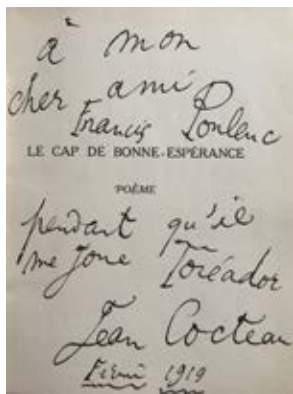 à mon
cher ami
Francis Poulenc
LE CAP DE BONNE-ESPÉRANCE
POÈME
pendant qu'il
me joue Toréador
Jean Cocteau
1919